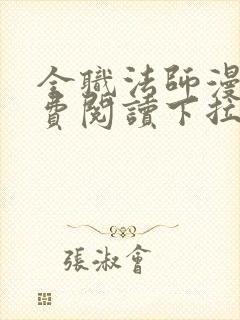 全職法師漫
費閱讀下拉
張淑會